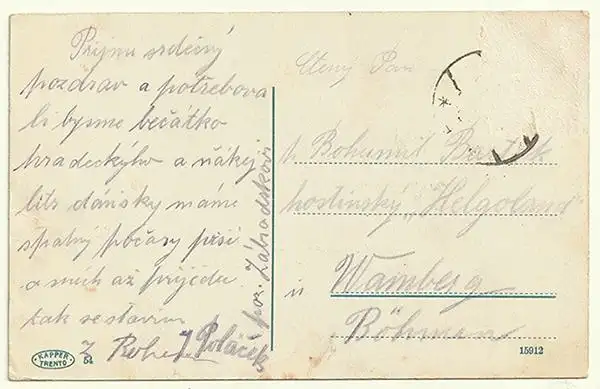 Přijmu srdečný
pozdrav a potřebova
li bysme bečátko
hradeckýho a ňákej
litr dáňsky máme
špatný počasy prší
a sních až přijedu
tak se stavim
Z
J Poláček
poz. Zábrodskovi
Ctený Pan
p Bohumil
hostinský „Helgoland"
Wamberg
Böhmen
KAPPER
TRENTO
54
15912